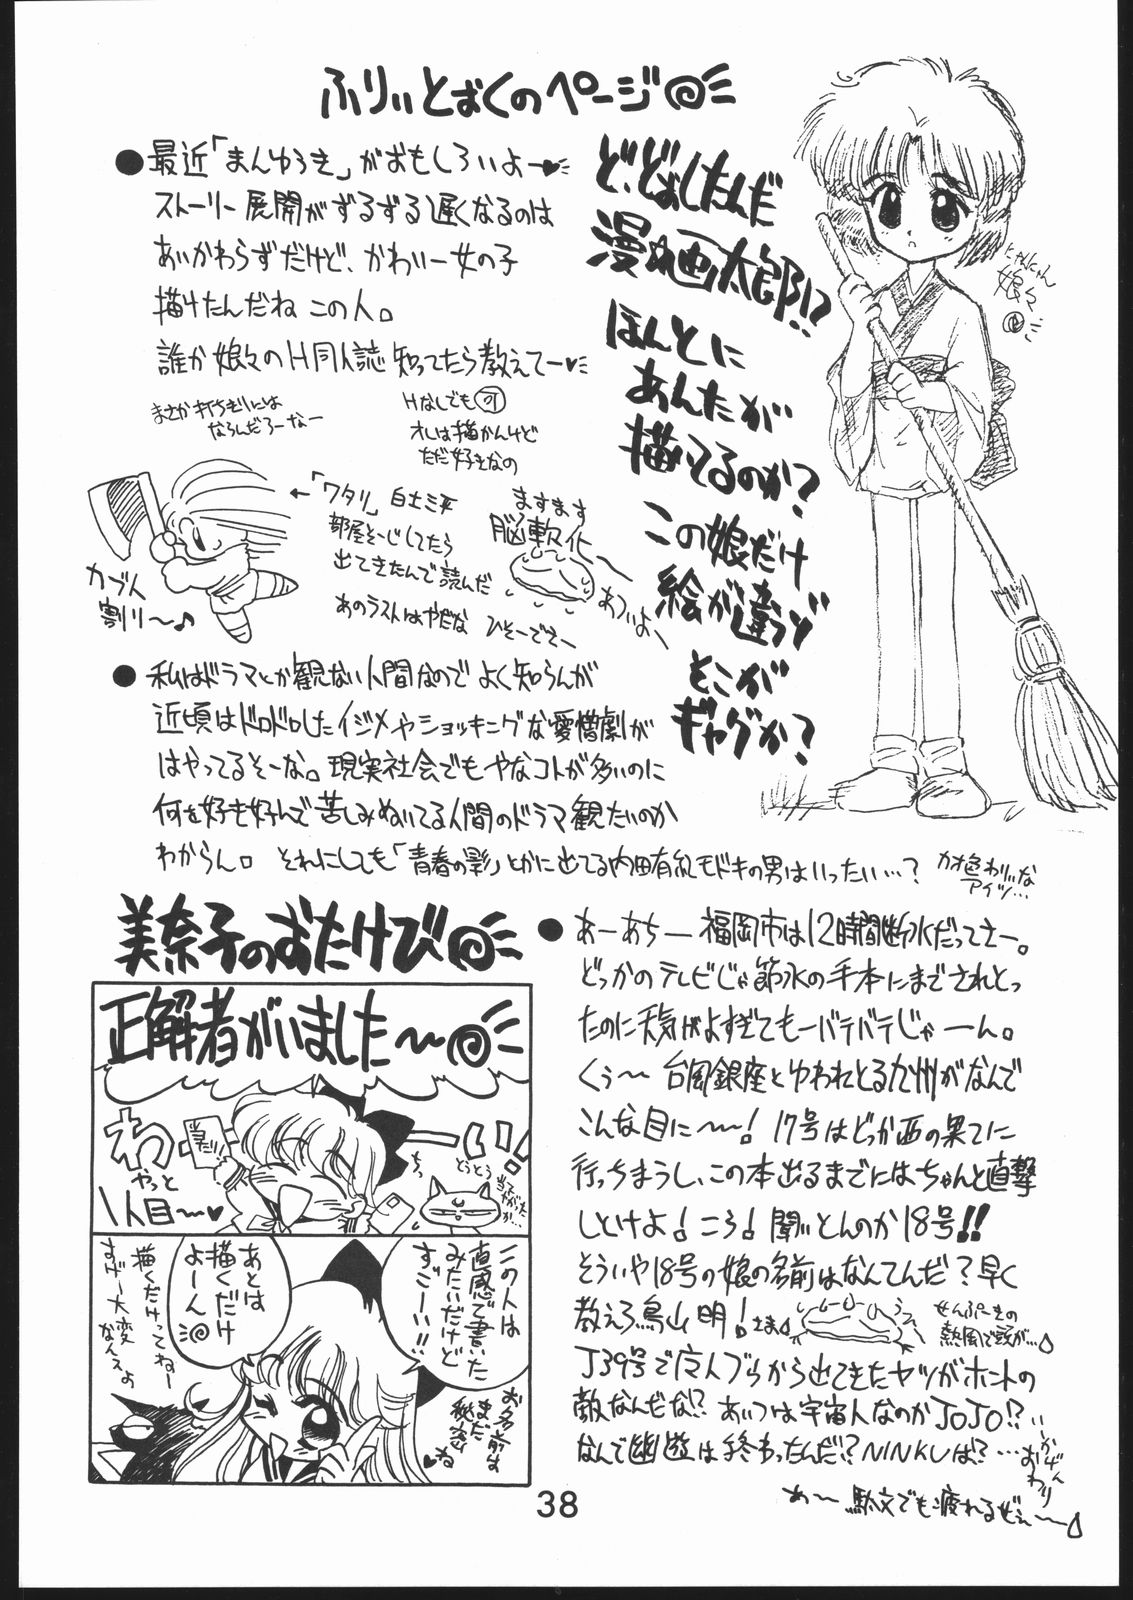 ふりぃとぉくのページ
●最近「まんゆうき」がおもしろいよー♥
ストーリー展開がずるずる遅くなるのは
あいかわらずだけど、かわいー女の子
描けたんだね この人。
誰か娘々のH同人誌 知ってたら教えてー♥
まさか打ちぎりには
ならんだろーなー
Hなしでも可
オレは描かんけど
ただ好きなの
ど、どぉしたんだ
漫☆画太郎!?
ほんとに
あんたが
描いてるのか?
この娘だけ
絵が違うぞ
そこが
ギャグか?
にゃんにゃん
娘々
カブト
割り〜♪
←「ワタリ」白土三平
部屋そーじしてたら
出てきたんで読んだ
あのラストはやだな ひそーでさー
ますます
脳軟化
あついよー
●私はドラマとか観ない人間なので よく知らんが
近頃はドロドロしたイジメやショッキングな愛憎劇が
はやってるそーな。現実社会でもやなコトが多いのに
何を好き好んで苦しみぬいてる人間のドラマ観たいのか
わからん。それにしても「青春の影」とかに出てる内田有紀モドキの男はいったい…?
カオ色わりいな
アイツ…
美奈子のおたけび
正解者がいました〜
わーい!
やっと
1人目〜♥
とうとう
当てやがったか…
この人は
直感で書いた
みたいだけど
すごーい!!
お名前は
まだ
秘密
ね♥
あとは
描くだけ
よーん
描くだけってねー
すげー大変
なんスよ
●あーあちー 福岡市は12時間断水だってさー。
どっかのテレビじゃ節水の手本にまでされとっ
たのに天気がよすぎてもーバテバテじゃーん。
くぅ〜 台風銀座とゆわれとる九州がなんで
こんな目に〜〜! 17号はどっか西の果てに
行っちまうし、この本出るまでにはちゃんと直撃
しとけよ! こら! 聞いとんのか18号!!
そういや18号の娘の名前はなんてんだ? 早く
教えろ鳥山明! さま
せんぷーきの
熱風で頭が…
J39号で広人ブッちから出てきたヤツがホントの
敵なんだな!? あいつは宇宙人なのかJOJO!?
なんで幽遊は終わったんだ!? NINKUは?…
いかげん
おわり
あ〜 駄文でも疲れるぜぇ〜
38